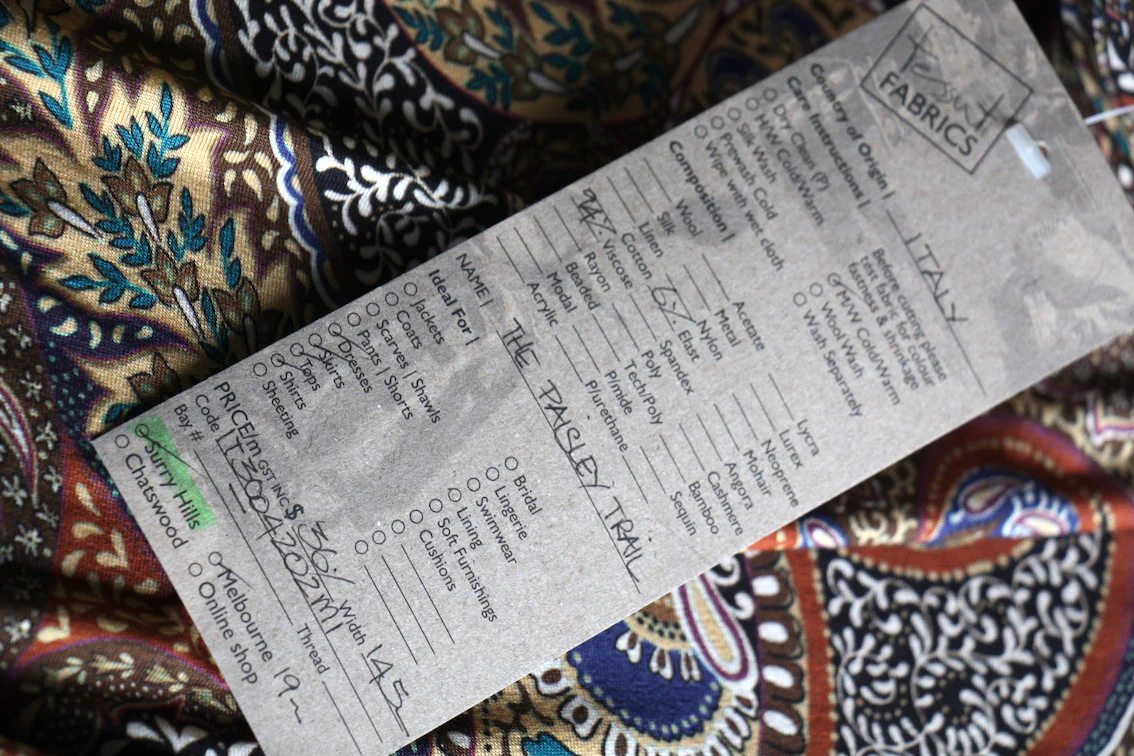 Tessuti
FABRICS
Country of Origin | ITALY
Care Instructions |
Dry Clean (P)
H/W Cold/Warm
Silk Wash
Prewash Cold
Wipe with wet cloth
Before cutting please
test fabric for colour
fastness & shrinkage
M/W Cold/Warm
Wool Wash
Wash Separately
Composition |
Wool
Silk
Linen
Cotton
94% Viscose
Rayon
Beaded
Modal
Acrylic
Acetate
Metal
Nylon
6% Elast
Spandex
Poly
Tech/Poly
P/mide
P/urethane
Lycra
Lurex
Neoprene
Mohair
Angora
Cashmere
Bamboo
Sequin
NAME | THE PAISLEY TRAIL
Ideal For |
Jackets
Coats
Scarves | Shawls
Pants | Shorts
Dresses
Skirts
Tops
Shirts
Sheeting
Bridal
Lingerie
Swimwear
Lining
Soft Furnishings
Cushions
PRICE/m GST INC $ 36/ Width 145
Code IT3004202M1
Bay # Thread
Surry Hills
Chatswood
Melbourne 19m
Online shop